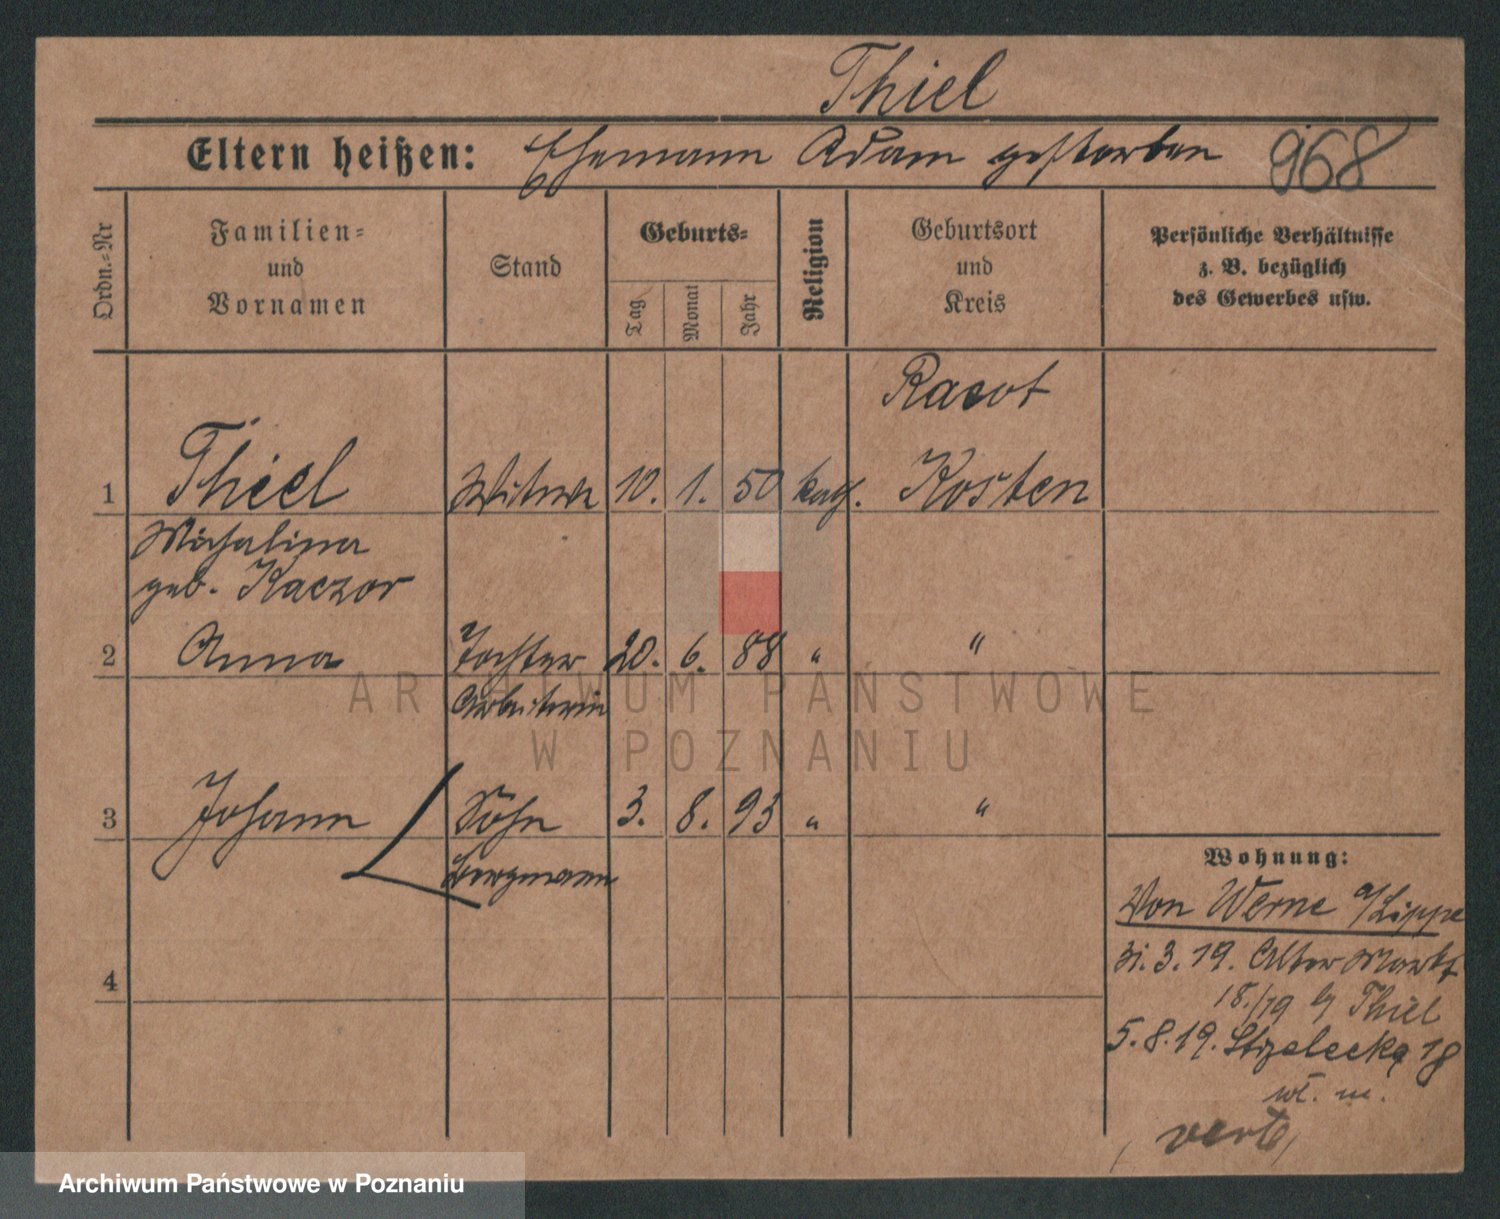 Thiel
Eltern heißen: Ehemann Adam gestorben 968
Ordn.-Nr
Familien-
und
Vornamen
Stand
Geburts-
Tag
Monat
Jahr
Religion
Geburtsort
und
Kreis
Persönliche Verhältnisse
z. B. bezüglich
des Gewerbes usw.
Racot
1 Thiel Witwe 10. 1. 50 kath. Kosten
Michalina
geb. Kaczor
2 Anna Tochter 20. 6. 88 " "
Arbeiterin
3 Johann Sohn 3. 8. 93 " "
Bergmann
4
Wohnung:
Von Werne a/Lippe
31.3.19. Alter Markt
18./19 b/ Thiel
5.8.19. Strzelecka 18
wł. m.
verte
ARCHIWUM PAŃSTWOWE
W POZNANIU
Archiwum Państwowe w Poznaniu